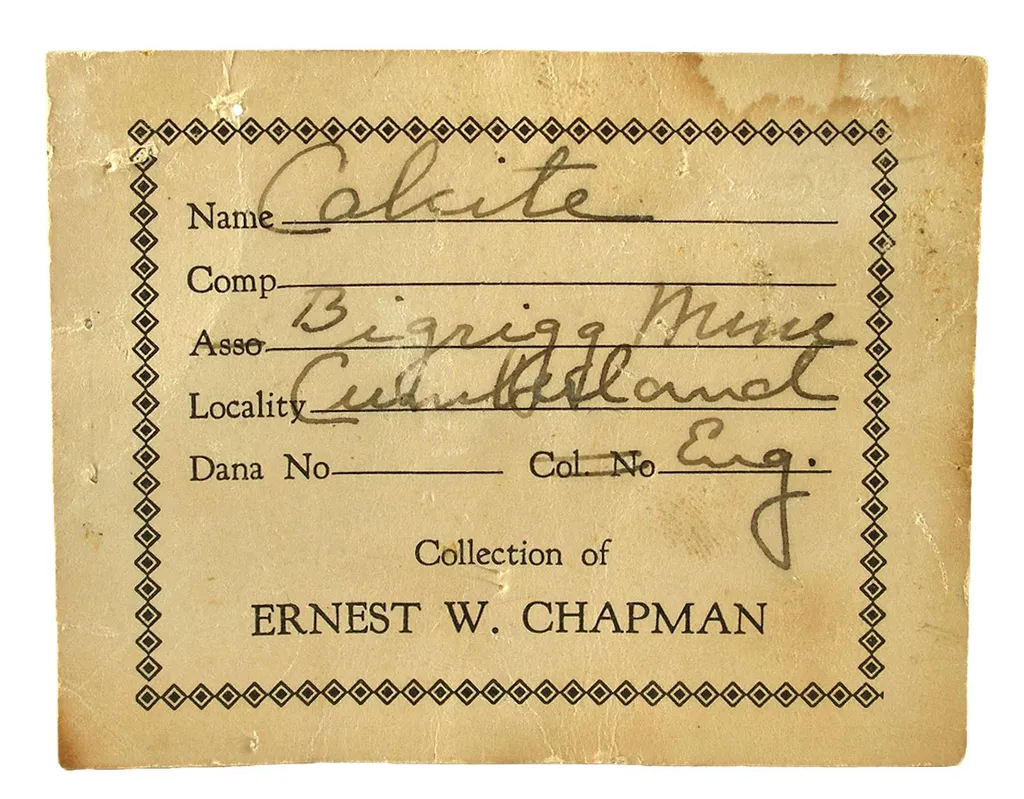 Name Calcite
Comp
Asso Bigrigg Mine
Locality Cumberland
Dana No Col. No Eng.
Collection of
ERNEST W. CHAPMAN